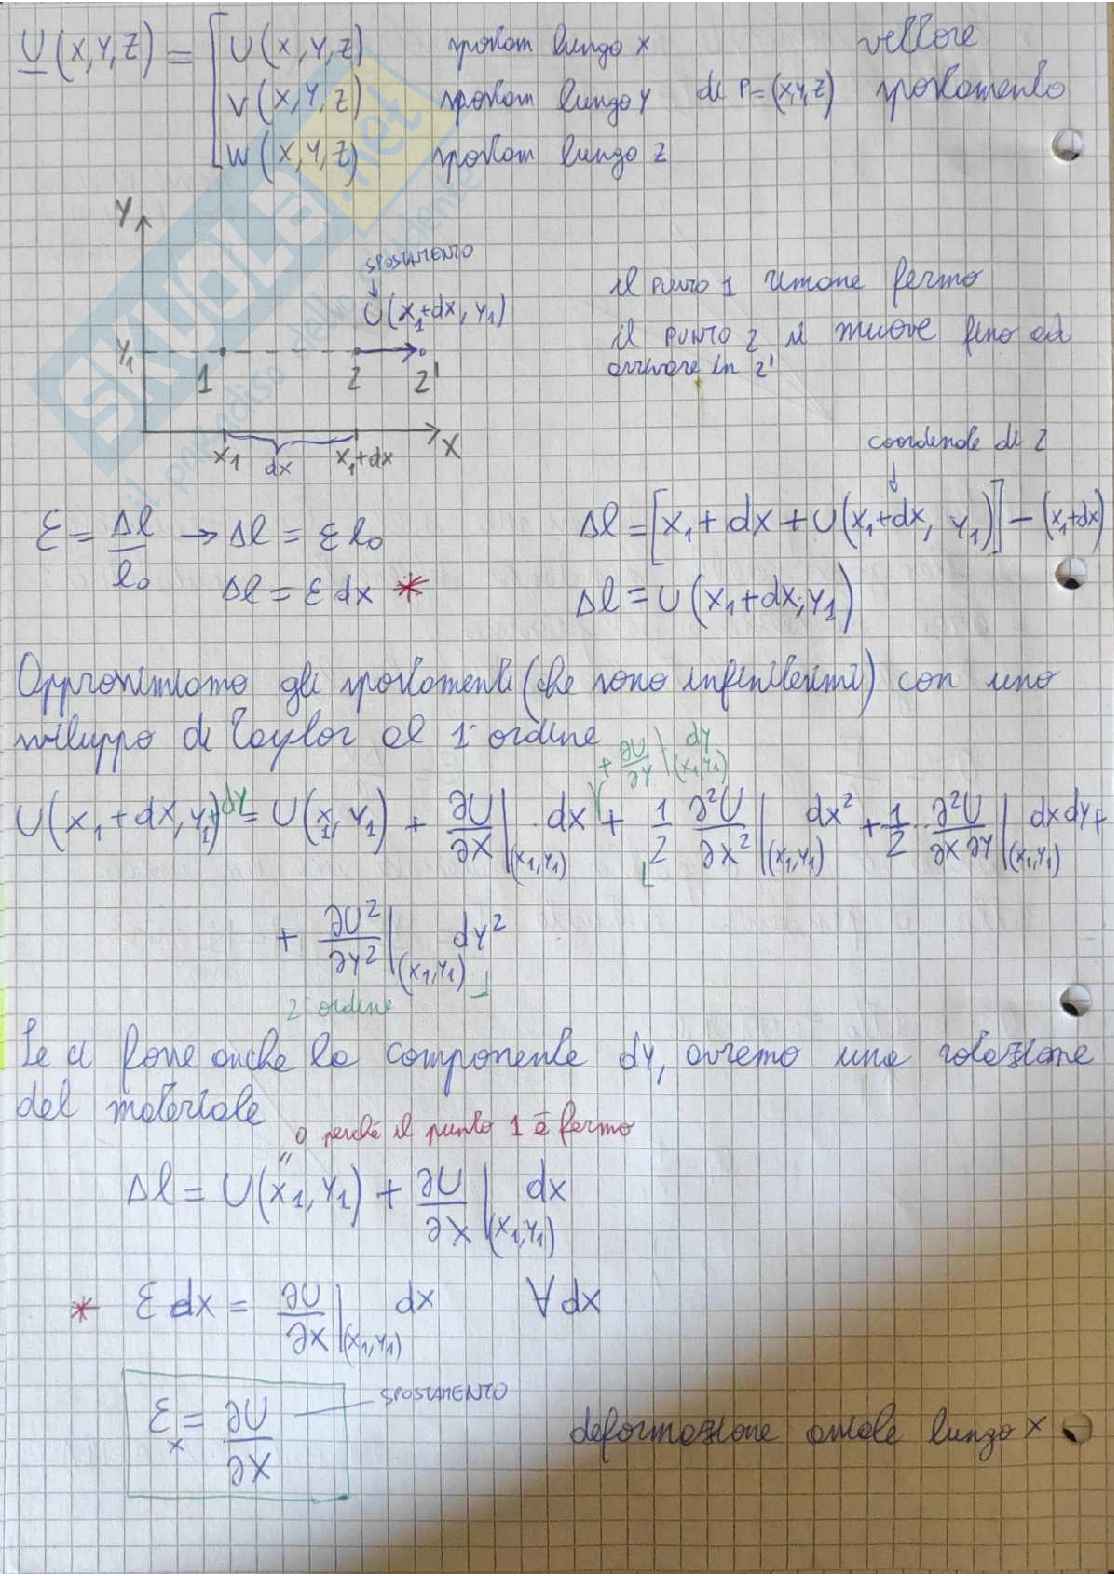 U(x,y,z) = [ U(x,y,z) spostam lungo x vettore
v(x,y,z) spostam lungo y di P=(x,y,z) spostamento
w(x,y,z) spostam lungo z
y
SPOSTAMENTO
U(x₁+dx, y₁)
il PUNTO 1 rimane fermo
il PUNTO 2 si muove fino ad
arrivare in 2'
y₁ 1 2 2'
x₁ dx x₁+dx x
coordinate di 2
ε = Δl/l₀ → Δl = ε l₀ Δl = [x₁ + dx + U(x₁+dx, y₁)] - (x₁+dx)
Δl = ε dx * Δl = U(x₁+dx, y₁)
Approssimiamo gli spostamenti (che sono infinitesimi) con uno
sviluppo di Taylor al 1° ordine
+ ∂U/∂y |(x₁,y₁) dy
U(x₁+dx, y₁+dy) = U(x₁,y₁) + ∂U/∂x |(x₁,y₁) · dx + 1/2 ∂²U/∂x² |(x₁,y₁) dx² + 1/2 ∂²U/∂x∂y |(x₁,y₁) dxdy +
+ ∂U²/∂y² |(x₁,y₁) dy²
2° ordine
Se ci fosse anche la componente dy, avremo una rotazione
del materiale
0 perché il punto 1 è fermo
Δl = U(x₁,y₁) + ∂U/∂x |(x₁,y₁) dx
* ε dx = ∂U/∂x |(x₁,y₁) dx ∀ dx
εₓ = ∂U/∂x SPOSTAMENTO
deformazione assiale lungo x
SKUOLA.net